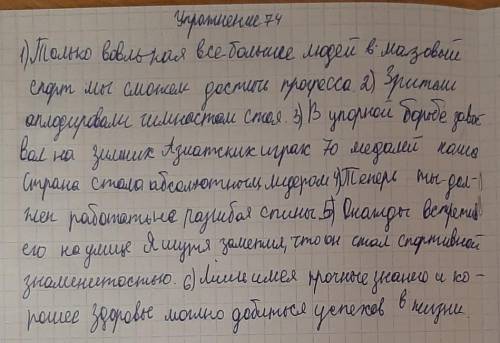 Упражнение 74
1) Только вовлекая все больше людей в мазовый
спорт мы сможем достичь прогресса 2) Зрители
аплодировали гимнастам стоя. 3) В упорной борьбе завое
вал на зимник Азиатских играх 70 медалей наша
Страна стала абсолютным лидером 4) Теперь ты дол-
жен работать на разгибая спины. 5) Однажды встретив
его на улице Я шутя заметил, что он стал спортивной
знаменитостью. 6) Лишь имея прочные знания и хо-
рошее здоровье можно добиться успехов в жизни.